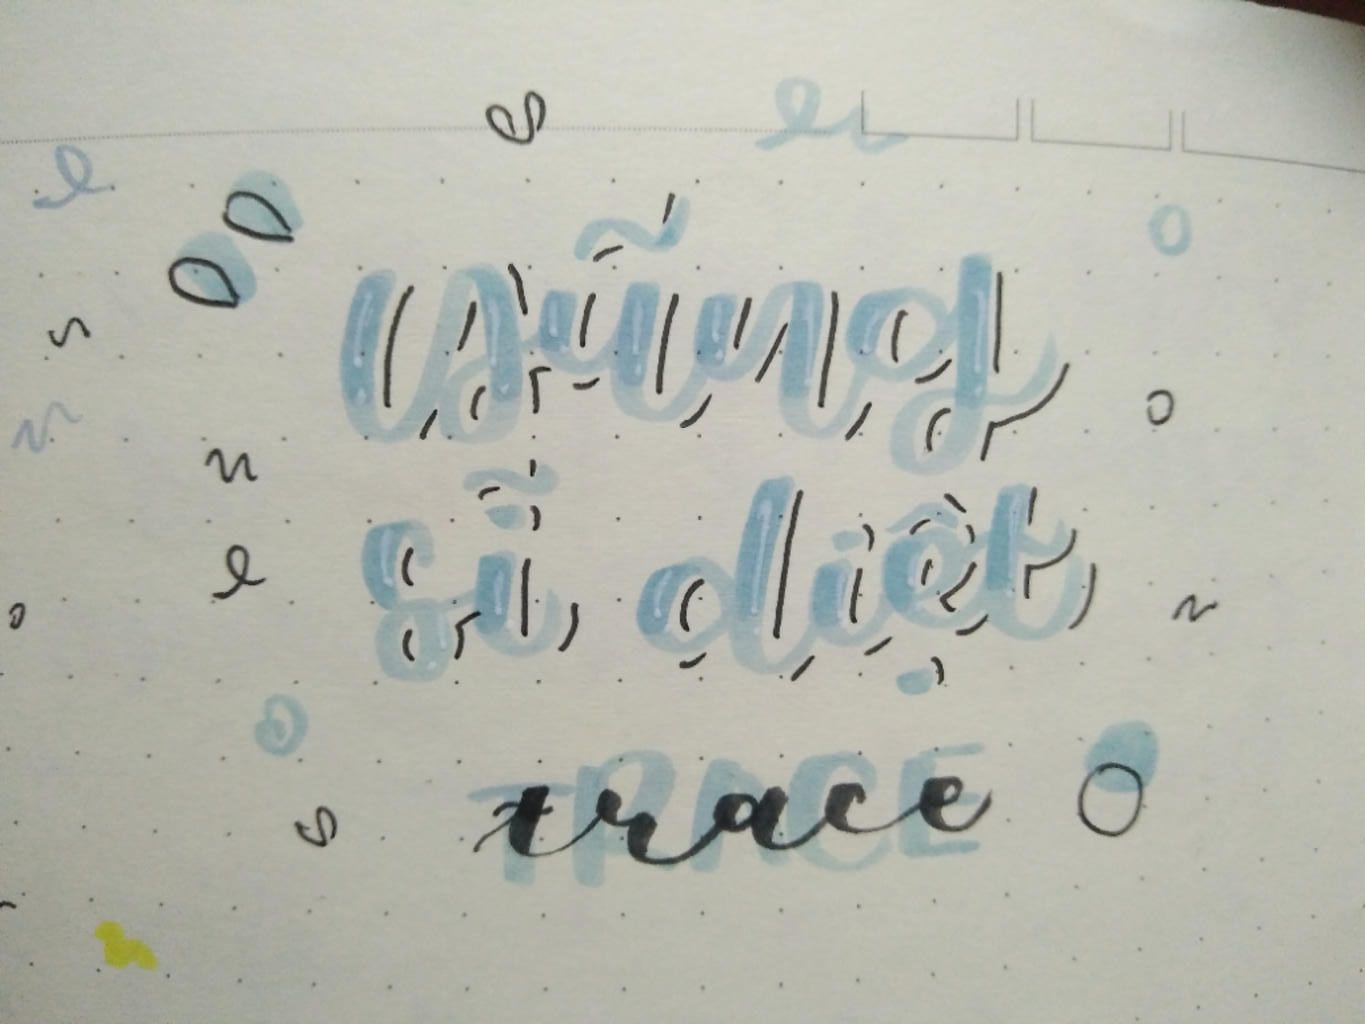 Dũng
sĩ diệt
TRACE
trace